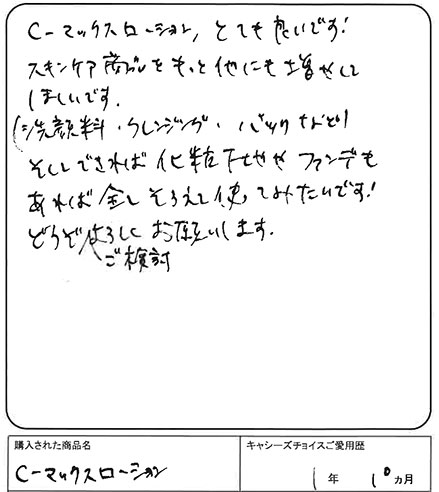 C-マックスローション、とても良いです！
スキンケア商品をもっと他にも増やして
ほしいです．
(洗顔料・クレンジング・パックなど)
そしてできれば化粧下地やファンデも
あれば全しそろえて使ってみたいです！
どうぞよろしくお願いします．
ご検討
購入された商品名
C-マックスローション
キャシーズチョイスご愛用歴
1年 10ヵ月